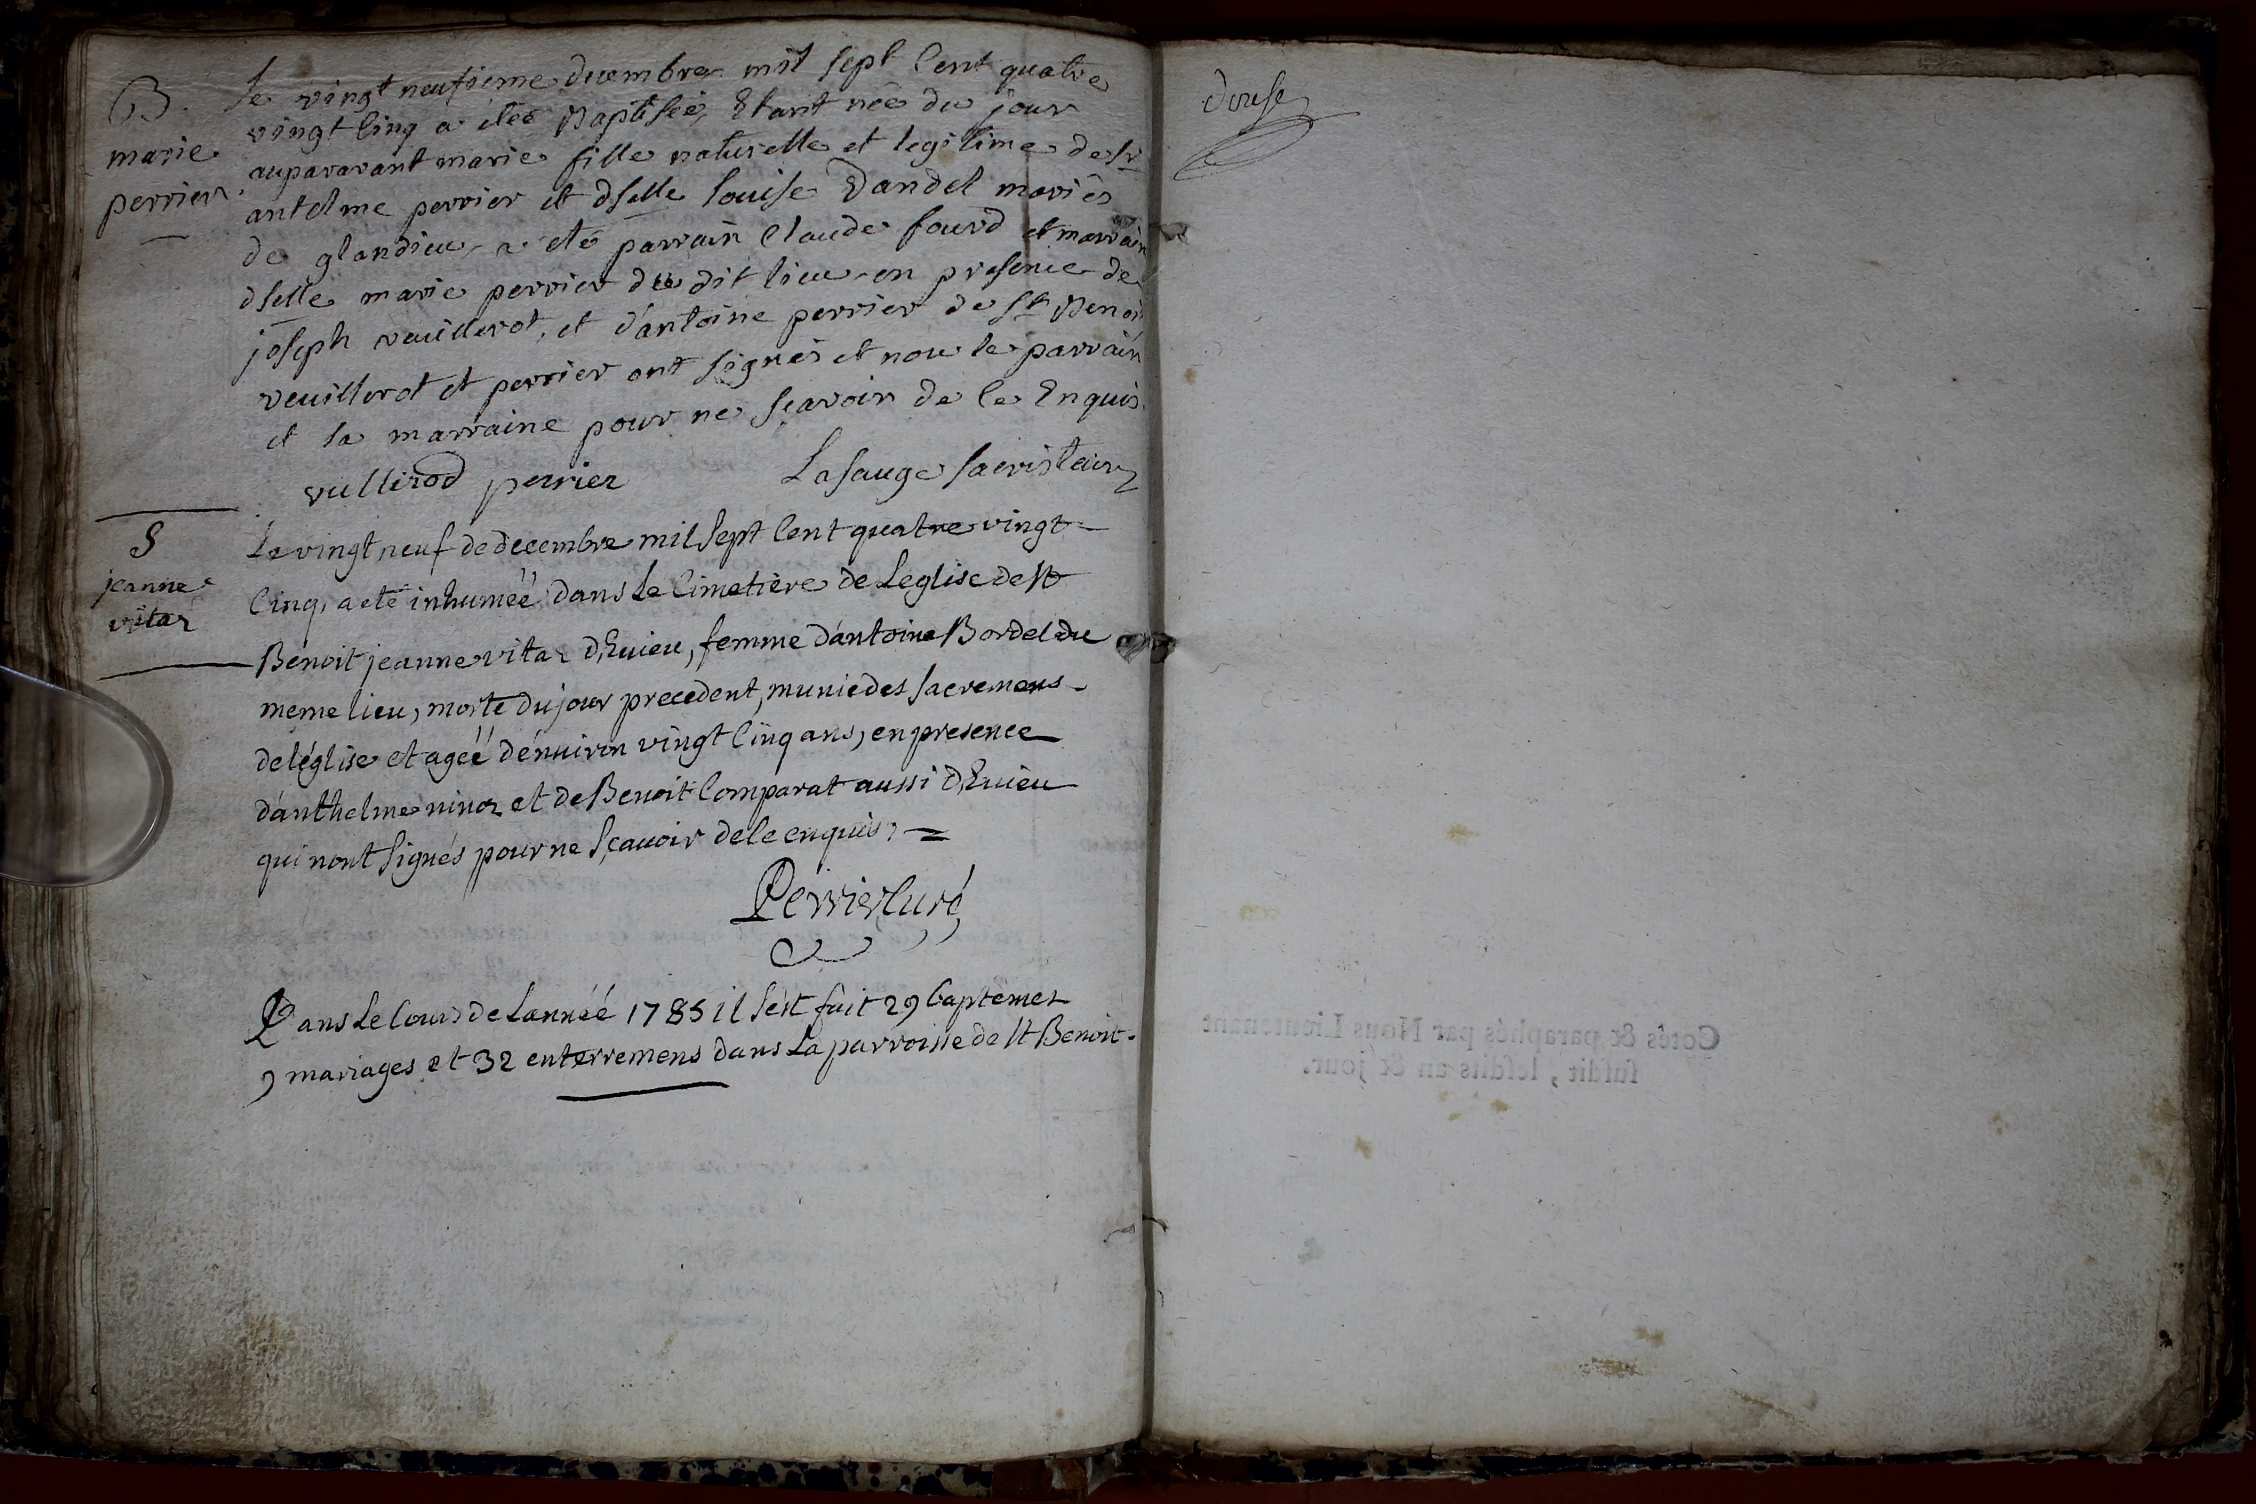 B.
marie
perrier
Le vingt neufieme decembre mil sept Cent quatre
vingt Cinq a étéé Baptisée, Etant née du jour
auparavant marie fille naturelle et legitime de Sr
antelme perrier et dselle louise Dandel mariés
de glandieu, a eté parrain Claude fourd et marrain
dselle marie perrier du dit lieu en presence de
joseph veuillerot, et d'antoine perrier de St Benoit
veuillerot et perrier ont signés et non le parrain
et la marraine pour ne sçavoir de ce Enquis.
vullirod perrier Lasauge sacristain
S
jeanne
vitaz
Le vingt neuf de decembre mil Sept Cent quatre vingt
Cinq, a eté inhumeé dans Le Cimetière de Leglise de St
Benoit jeanne vitaz d'Euieu, femme d'antoine Bordel du
meme lieu, morte du jour precedent, munie des sacremens
de léglise et ageé dénuiron vingt Cinq ans, en presence
d'anthelme ninoz et de Benoit Comparat aussi d'Euieu
qui nont signés pour ne Sçauoir de le enquis, =
Perrier Curé
Dans Le Cours de Lanneé 1785 il s'est fait 29 baptemes
9 mariages et 32 enterremens dans La parroisse de St Benoit.
douse
Cotés & paraphés par Nous Lieutenant
susdit, lesdits an & jour.